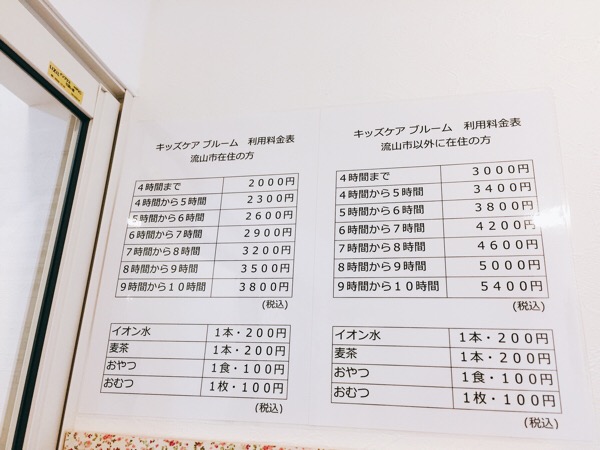 キッズケア ブルーム 利用料金表
流山市在住の方
4時間まで 2000円
4時間から5時間 2300円
5時間から6時間 2600円
6時間から7時間 2900円
7時間から8時間 3200円
8時間から9時間 3500円
9時間から10時間 3800円
(税込)
イオン水 1本・200円
麦茶 1本・200円
おやつ 1食・100円
おむつ 1枚・100円
(税込)
キッズケア ブルーム 利用料金表
流山市以外に在住の方
4時間まで 3000円
4時間から5時間 3400円
5時間から6時間 3800円
6時間から7時間 4200円
7時間から8時間 4600円
8時間から9時間 5000円
9時間から10時間 5400円
(税込)
イオン水 1本・200円
麦茶 1本・200円
おやつ 1食・100円
おむつ 1枚・100円
(税込)